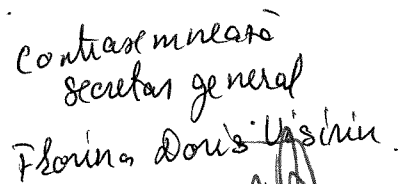 contrasemnează
secretar general
Florina Doris Visirin